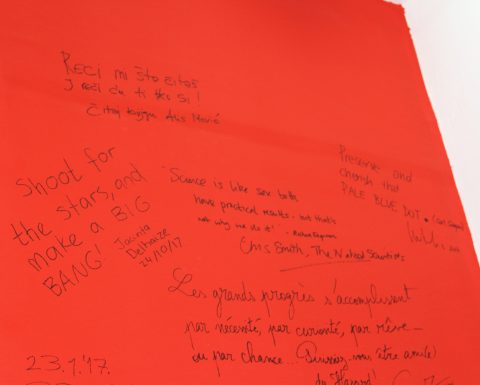 Reci mi što čitaš
I reći ću ti tko si!
Čitaj knjigu
Shoot for
the stars, and
make a BIG
BANG!
Jacinta
Delhaize
24/10/17
Preserve and
cherish that
PALE BLUE DOT. (Carl Sagan)
"Science is like sex both
have practical results - but that's
not why we do it" - Richard Feynman
Chris Smith, The Naked Scientists
Les grands progrès s'accomplissent
par nécessité, par curiosité, par rêve
ou par chance... Puissiez-vous être ami(e)
du Hasard!
23.1.'17.